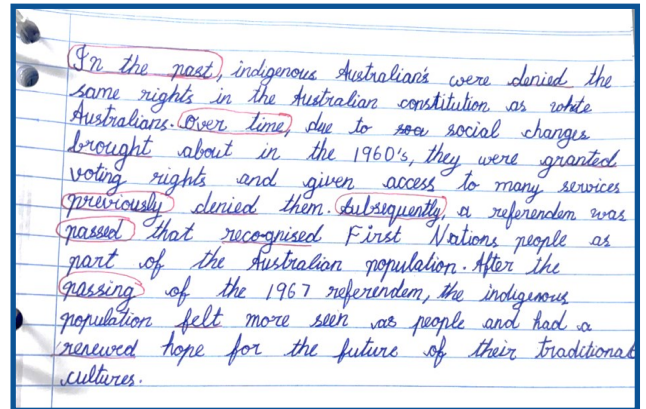 In the past, indigenous Australian's were denied the
same rights in the Australian constitution as white
Australians. Over time, due to social changes
brought about in the 1960's, they were granted
voting rights and given access to many services
previously denied them. Subsequently, a referendem was
passed that recognised First Nations people as
part of the Australian population. After the
passing of the 1967 referendem, the indigenous
population felt more seen as people and had a
renewed hope for the future of their traditional
cultures.